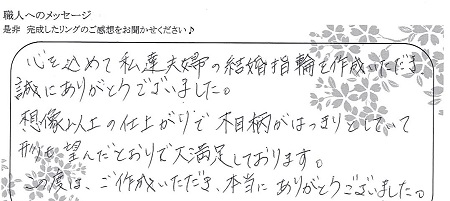 職人へのメッセージ
是非 完成したリングのご感想をお聞かせください♪
心を込めて私達夫婦の結婚指輪を作成いただき、
誠にありがとうございました。
想像以上の仕上がりで木目柄がはっきりとしていて
形も望んだとおりで大満足しております。
この度は、ご作成いただき、本当にありがとうございました。